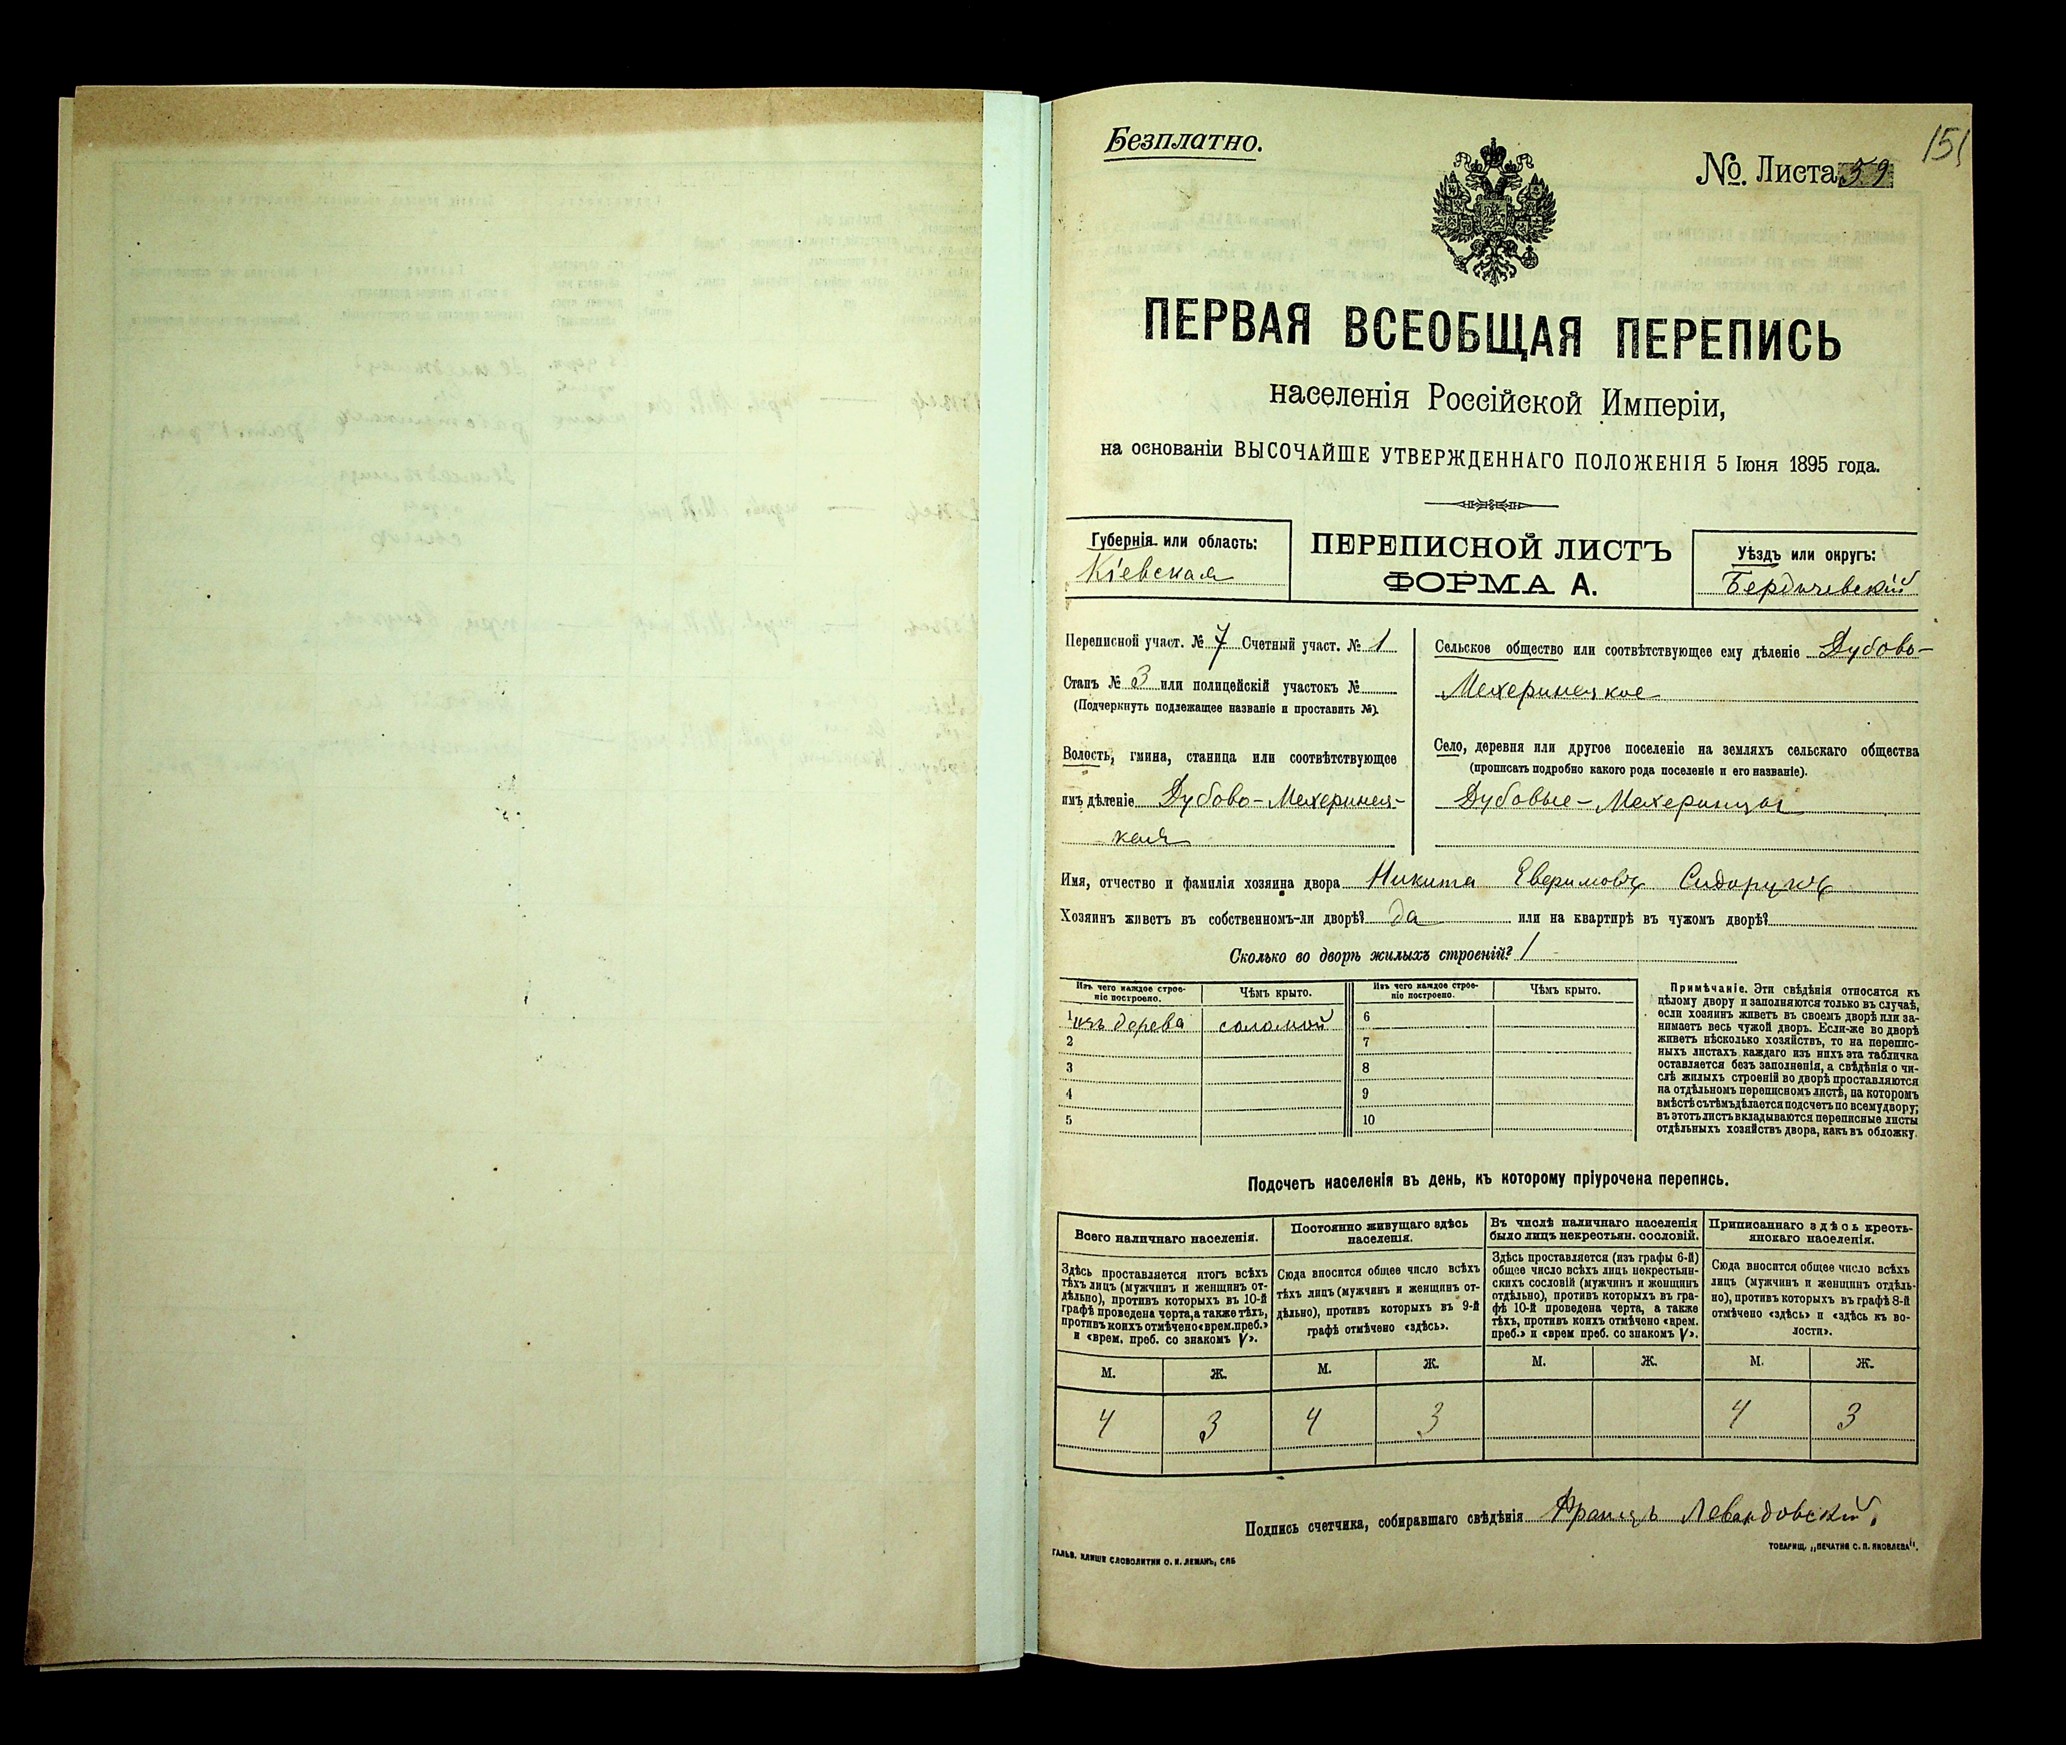 Безплатно.
№. Листа 59
151
ПЕРВАЯ ВСЕОБЩАЯ ПЕРЕПИСЬ
населенія Россійской Имперіи,
на основаніи ВЫСОЧАЙШЕ УТВЕРЖДЕННАГО ПОЛОЖЕНІЯ 5 Іюня 1895 года.
Губернія или область:
Кіевская
ПЕРЕПИСНОЙ ЛИСТЪ
ФОРМА А.
Уѣздъ или округъ:
Бердичевскій
Переписной участ. № 7 Счетный участ. № 1
Станъ № 3 или полицейскій участокъ №
(Подчеркнуть подлежащее названіе и проставить №).
Волость, гмина, станица или соотвѣтствующее
имъ дѣленіе Дубово-Мехеринец-
кая
Сельское общество или соотвѣтствующее ему дѣленіе Дубово-
Мехеринецкое
Село, деревня или другое поселеніе на земляхъ сельскаго общества
(прописать подробно какого рода поселеніе и его названіе).
Дубовые-Мехеринцы
Имя, отчество и фамилія хозяина двора Никита Сидорукъ
Хозяинъ живетъ въ собственномъ-ли дворѣ? да или на квартирѣ въ чужомъ дворѣ?
Сколько во дворѣ жилыхъ строеній? 1
Изъ чего каждое строе-
ніе построено.
Чѣмъ крыто.
Изъ чего каждое строе-
ніе построено.
Чѣмъ крыто.
1 изъ дерева соломой 6
2 7
3 8
4 9
5 10
Примѣчаніе. Эти свѣдѣнія относятся къ
цѣлому двору и заполняются только въ случаѣ,
если хозяинъ живетъ въ своемъ дворѣ или за-
нимаетъ весь чужой дворъ. Если-же во дворѣ
живетъ нѣсколько хозяйствъ, то на перепис-
ныхъ листахъ каждаго изъ нихъ эта табличка
оставляется безъ заполненія, а свѣдѣнія о чи-
слѣ жилыхъ строеній во дворѣ проставляются
на отдѣльномъ переписномъ листѣ, на которомъ
вмѣстѣ съ тѣмъ дѣлается подсчетъ по всему двору;
въ этотъ листъ вкладываются переписные листы
отдѣльныхъ хозяйствъ двора, какъ въ обложку.
Подсчетъ населенія въ день, къ которому пріурочена перепись.
Всего наличнаго населенія.
Постоянно живущаго здѣсь
населенія.
Въ числѣ наличнаго населенія
было лицъ некрестьян. сословій.
Приписаннаго здѣсь кресть-
янскаго населенія.
Здѣсь проставляется итогъ всѣхъ
тѣхъ лицъ (мужчинъ и женщинъ от-
дѣльно), противъ которыхъ въ 10-й
графѣ проведена черта, а также тѣхъ,
противъ коихъ отмѣчено «врем. преб.»
и «врем. преб. со знакомъ V».
Сюда вносится общее число всѣхъ
тѣхъ лицъ (мужчинъ и женщинъ от-
дѣльно), противъ которыхъ въ 9-й
графѣ отмѣчено «здѣсь».
Здѣсь проставляется (изъ графы 6-й)
общее число всѣхъ лицъ некрестьян-
скихъ сословій (мужчинъ и женщинъ
отдѣльно), противъ которыхъ въ гра-
фѣ 10-й проведена черта, а также
тѣхъ, противъ коихъ отмѣчено «врем.
преб.» и «врем преб. со знакомъ V».
Сюда вносится общее число всѣхъ
лицъ (мужчинъ и женщинъ отдѣль-
но), противъ которыхъ въ графѣ 8-й
отмѣчено «здѣсь» и «здѣсь къ во-
лости».
М. Ж. М. Ж. М. Ж. М. Ж.
4 3 4 3 4 3
Подпись счетчика, собиравшаго свѣдѣнія Францъ Левандовскій.
ГАЛЬВ. КЛИШЕ СЛОВОЛИТНИ О. И. ЛЕМАНЪ, СПБ
ТОВАРИЩ. „ПЕЧАТНЯ С. П. ЯКОВЛЕВА“.